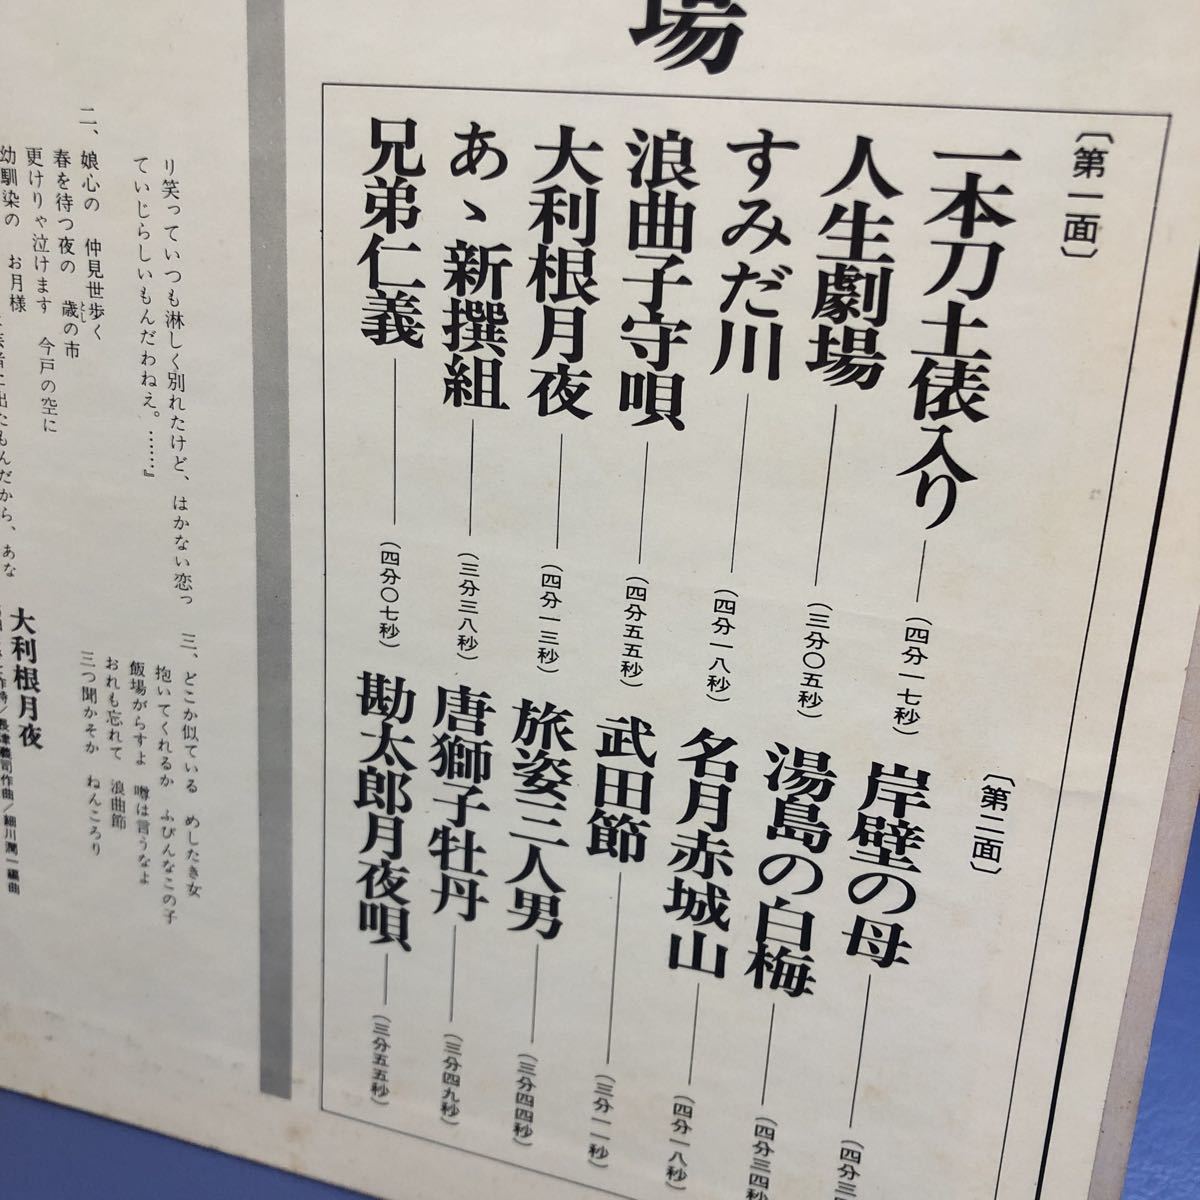 場
〔第一面〕
一本刀土俵入り（四分一七秒）
人生劇場（三分〇五秒）
すみだ川（四分一八秒）
浪曲子守唄（四分五五秒）
大利根月夜（四分一三秒）
あゝ新撰組（三分三八秒）
兄弟仁義（四分〇七秒）
〔第二面〕
岸壁の母（四分三
湯島の白梅（四分三四秒
名月赤城山（四分一八秒）
武田節（三分一一秒）
旅姿三人男（三分四四秒）
唐獅子牡丹（三分四九秒）
勘太郎月夜唄（三分五五秒）
り笑っていつも淋しく別れたけど、はかない恋っ
ていじらしいもんだわねぇ。……』
二、娘心の　仲見世歩く
春を待つ夜の　歳の市
とし
更けりゃ泣けます　今戸の空に
幼馴染の　お月様
出たもんだから、あな
三、どこか似ている　めしたき女
抱いてくれるか　ふびんなこの子
飯場がらすよ　噂は言うなよ
おれも忘れて　浪曲節
三つ聞かそか　ねんころり
大利根月夜
作詩／長津義司作曲／細川潤一編曲